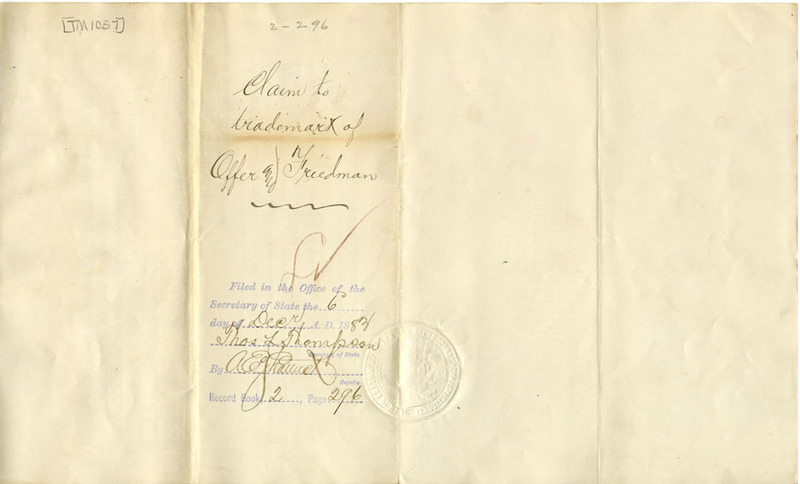 [TM1057]
2-296
Claim to
trademark of
Offer & Friedman
Filed in the Office of the
Secretary of State the 6
day of Decr, A. D. 188
Thos L. Thompson
Secretary of State.
By
Deputy.
Record Book 2, Page 296